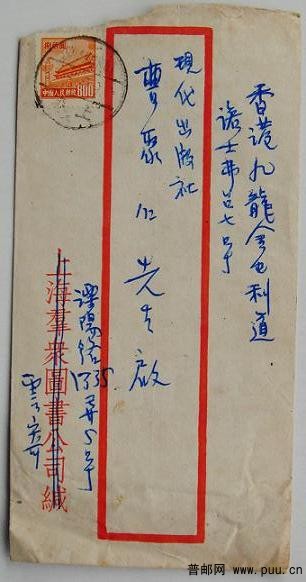 香港九龍金巴利道
諾士弗台七号
現代出版社
曹聚仁 先生啟
上海羣衆圖書公司緘
溧陽路1335弄5号
中國人民郵政
800
普邮网 www.puu.cn